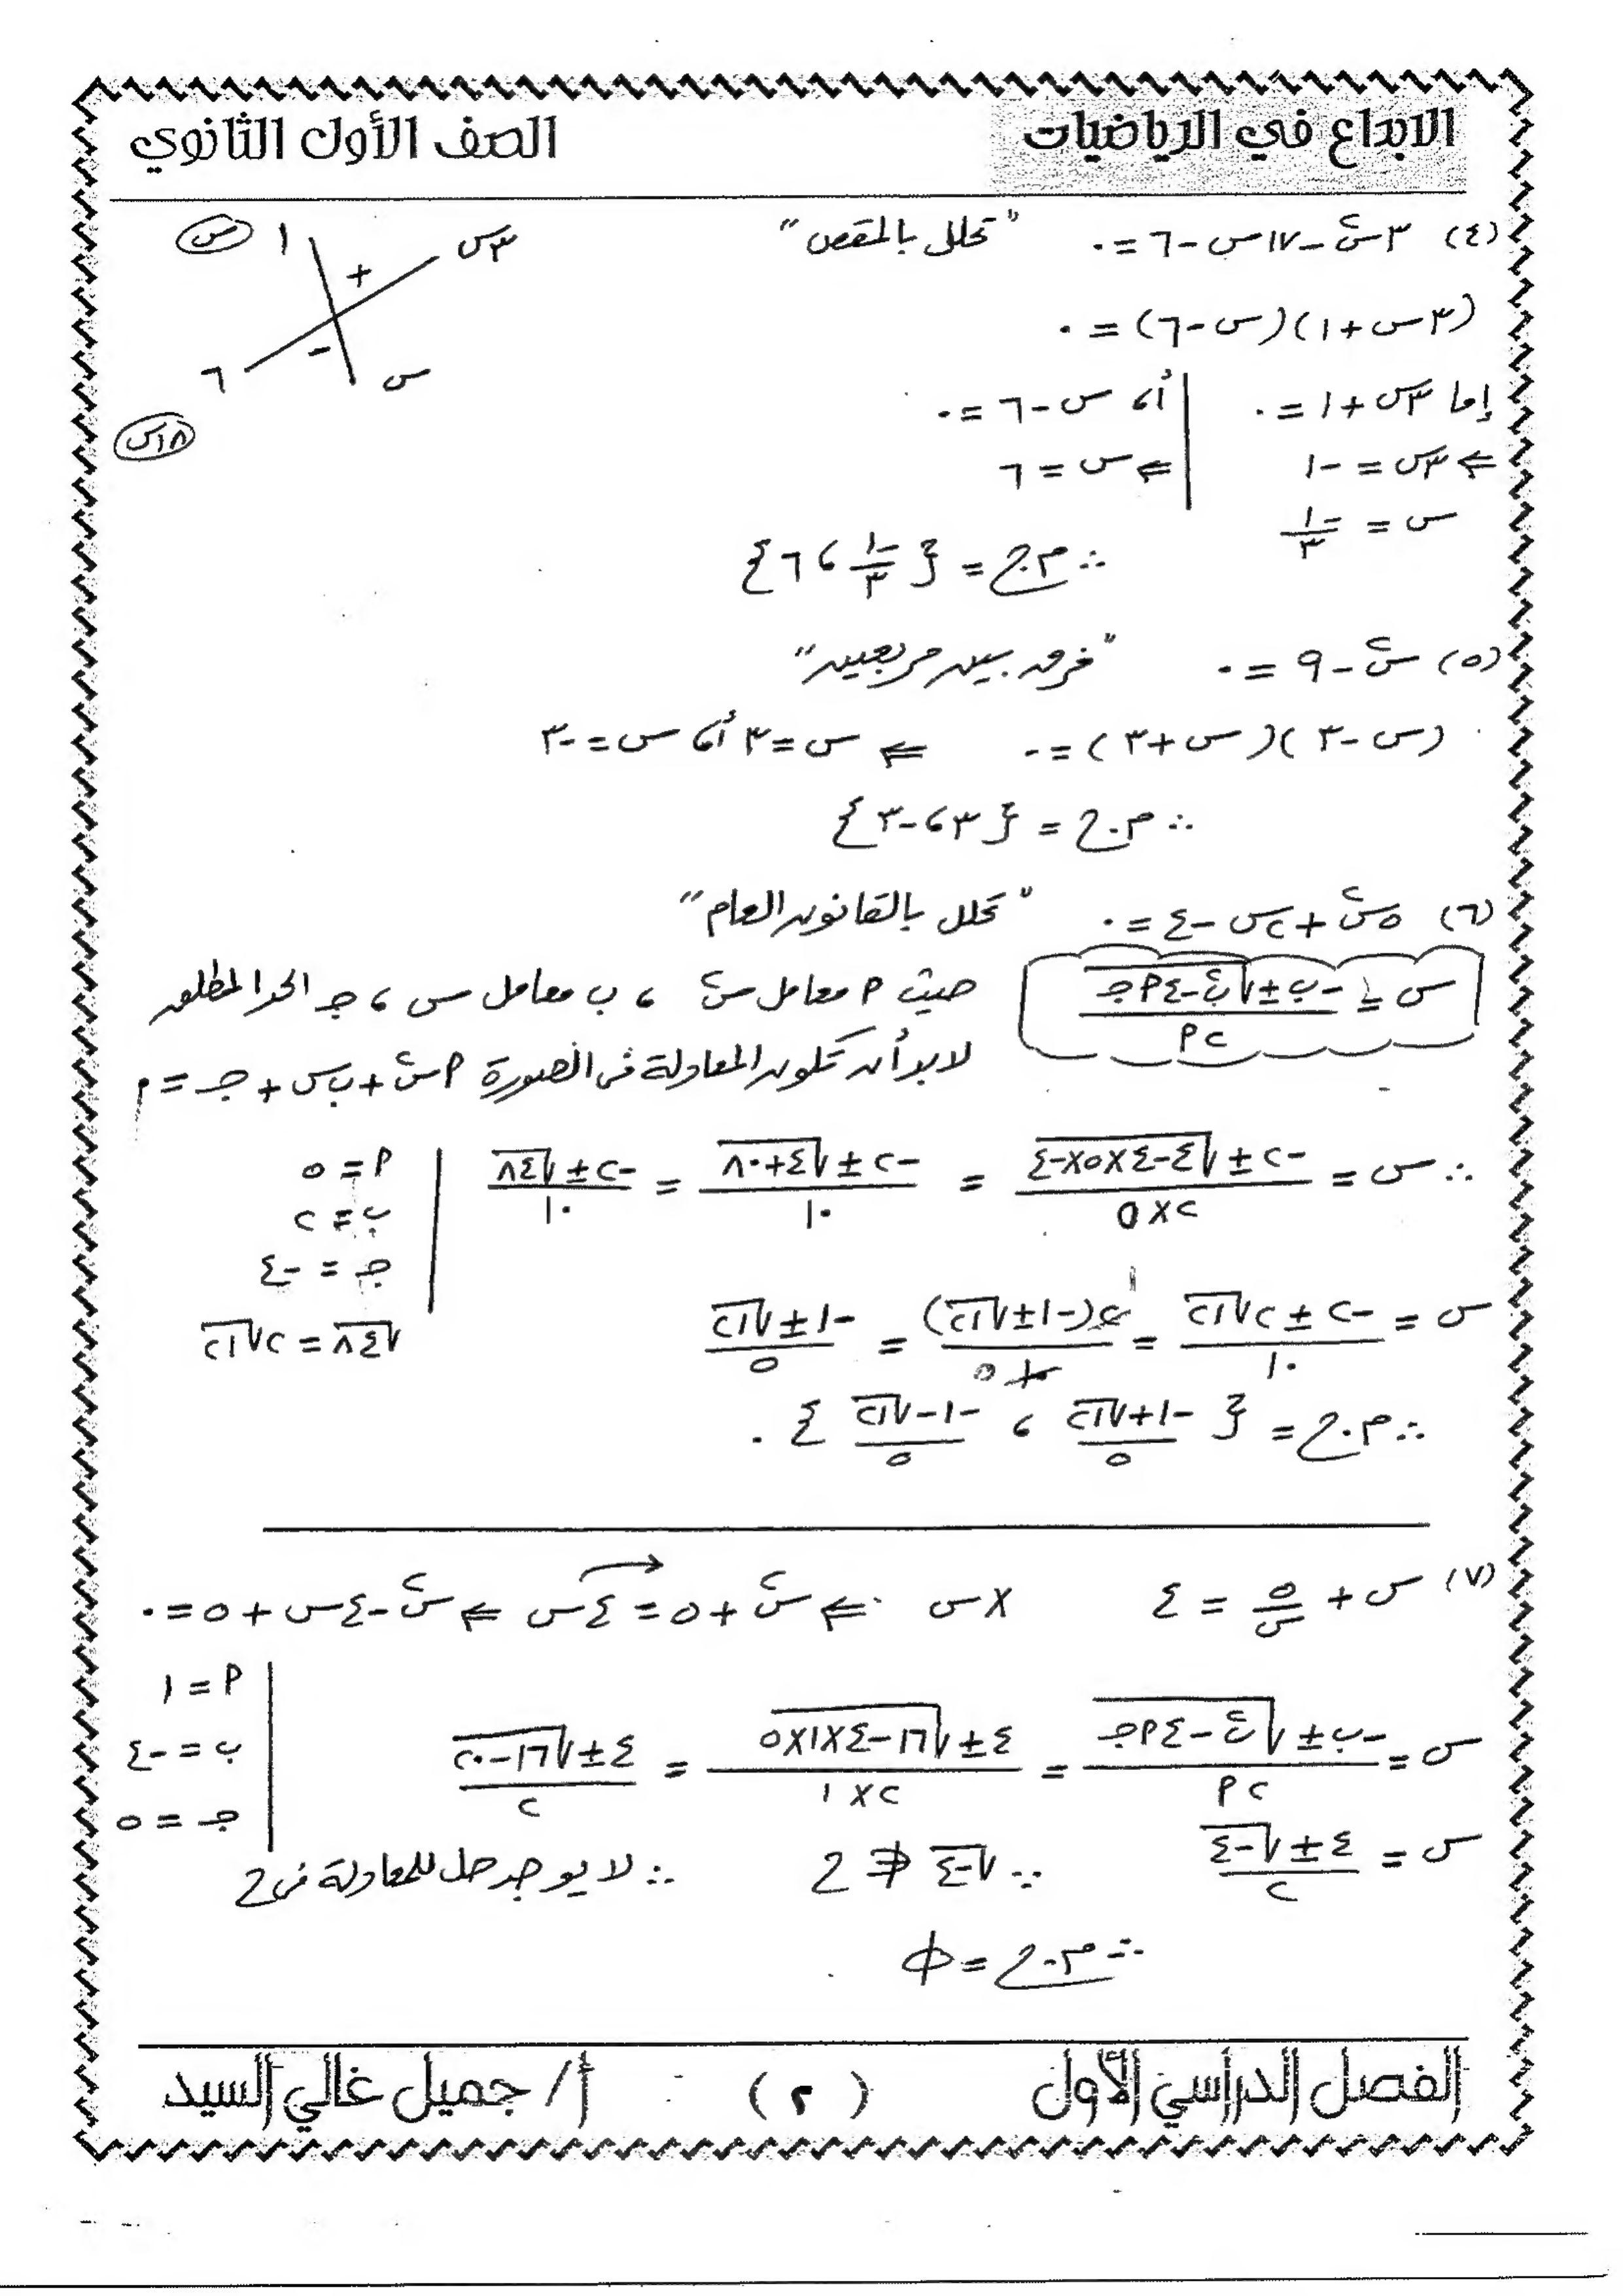 الابداع في الرياضيات الصف الأول الثانوي
(٤) ٣س٢ - ١٧س - ٦ = ٠ "تحلل بالمقص"
٣س ١ س
+
-
س ٦ ١٨س
(٣س + ١)(س - ٦) = ٠
إما ٣س + ١ = ٠ | أ، س - ٦ = ٠
⇐ ٣س = -١ | ⇐ س = ٦
س = -١/٣
∴ م.ح = {-١/٣ ، ٦}
(٥) س٢ - ٩ = ٠ "فرق بين مربعين"
(س - ٣)(س + ٣) = ٠ ⇐ س = ٣ أ، س = -٣
∴ م.ح = {٣ ، -٣}
(٦) ٥س٢ + ٢س - ٤ = ٠ "تحلل بالقانون العام"
س = (-ب ± √(ب٢ - ٤أجـ)) / ٢أ حيث أ معامل س٢ ، ب معامل س ، جـ الحد المطلق
لابد أن تكون المعادلة في الصورة أس٢ + ب س + جـ = ٠
∴ س = (-٢ ± √(٤ - ٤×٥×-٤)) / ٢×٥ = (-٢ ± √(٤+٨٠)) / ١٠ = (-٢ ± √٨٤) / ١٠ | أ = ٥
ب = ٢
جـ = -٤
س = (-٢ ± ٢√٢١) / ١٠ = ٢(-١ ± √٢١) / ١٠ ٥ = (-١ ± √٢١) / ٥ √٨٤ = ٢√٢١
∴ م.ح = {(-١ + √٢١)/٥ ، (-١ - √٢١)/٥} .
(٧) س + ٥/س = ٤ × س ⇐ س٢ + ٥ = ٤س ⇐ س٢ - ٤س + ٥ = ٠
أ = ١
س = (-ب ± √(ب٢ - ٤أجـ)) / ٢أ = (٤ ± √(١٦ - ٤×١×٥)) / ٢×١ = (٤ ± √(١٦ - ٢٠)) / ٢ | ب = -٤
جـ = ٥
س = (٤ ± √-٤) / ٢ ∵ √-٤ ∉ ح ∴ لا يوجد حل للمعادلة في ح
∴ م.ح = Φ
الفصل الدراسي الأول (٢) أ/ جميل غالي السيد